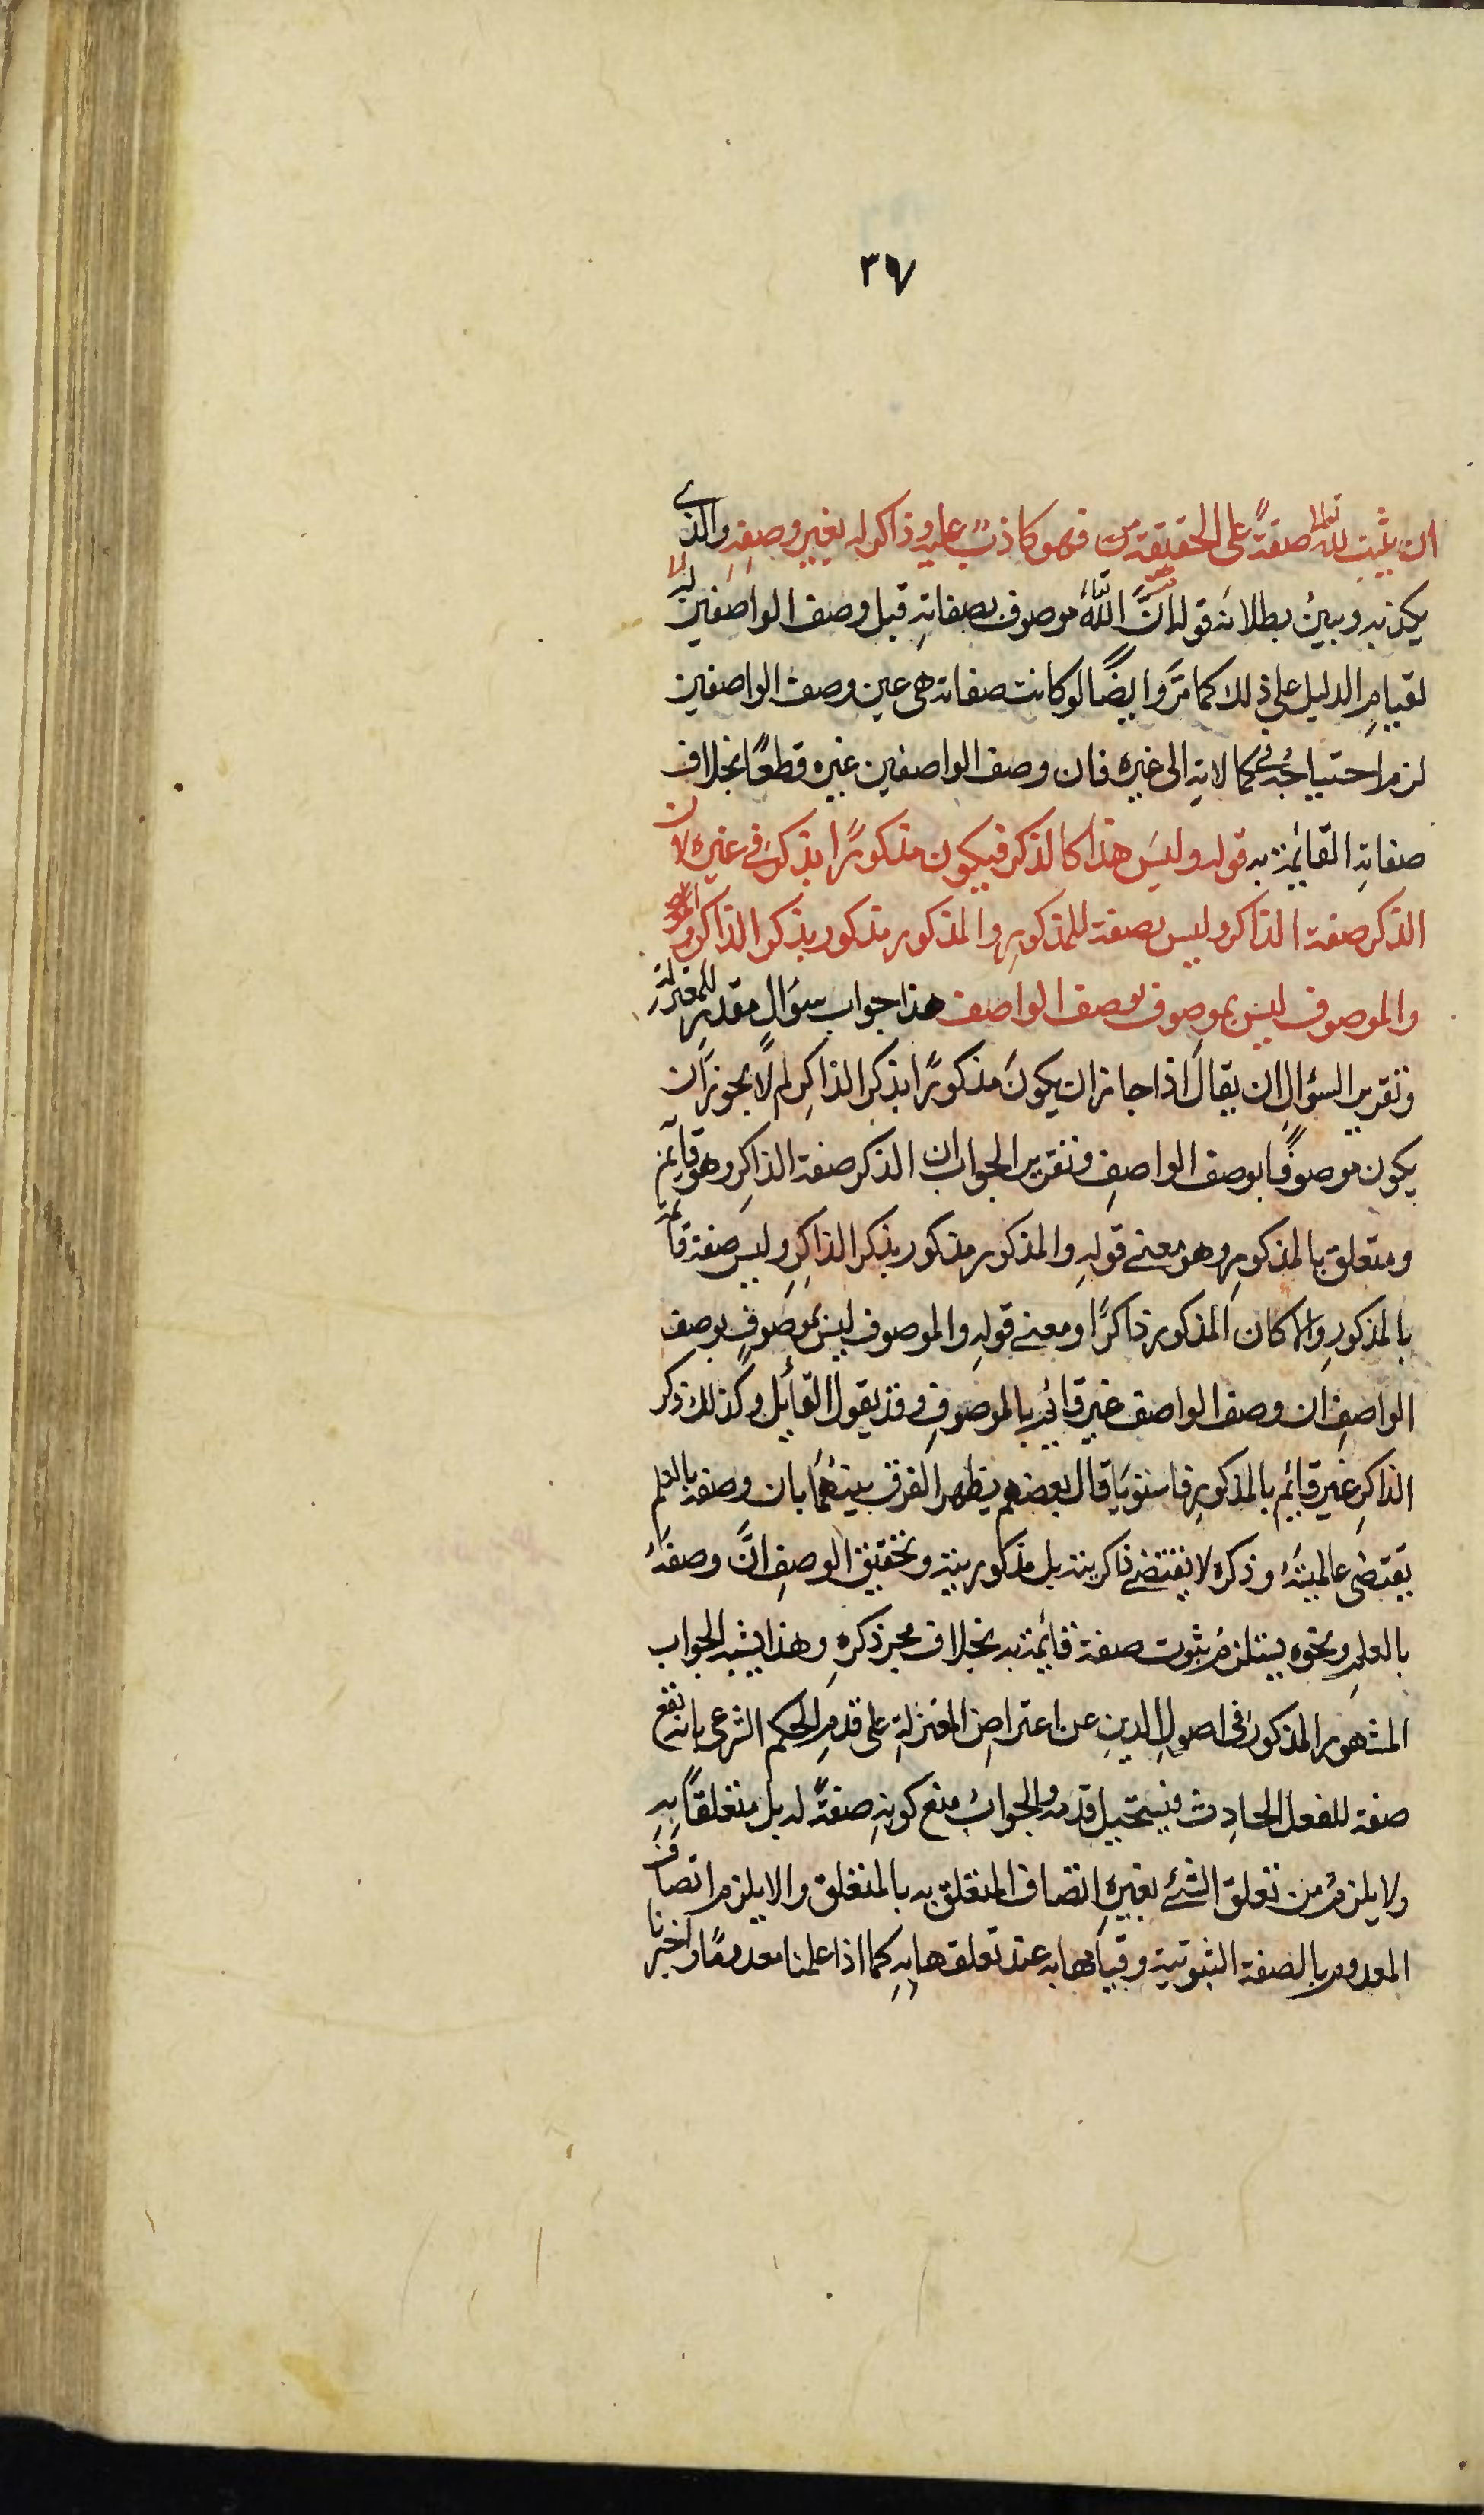 ٣٧
ان يثبت لله تعالى صفةً على الحقيقة فهو كاذبٌ عليه وذاكر له بغير وصفِهِ والذي
يكذبه ويبينُ بطلانه قوله انَّ اللّٰه تعالى موصوف بصفاتِهِ قبل وصف الواصفين له
لقيامِ الدليل على ذلك كما مرَّ وايضًا لو كانت صفاته هى عين وصف الواصفين
لزم احتياجُه فى كمالاتِهِ الى غيرِه فان وصف الواصفين غيره قطعًا بخلاف
صفاتِهِ القائمة به قوله وليسَ هذا كالذكر فيكون مذكورًا بذكرٍ فى غيره لان
الذكر صفة الذاكر وليس بصفة للمذكورِ والمذكور مذكور بذكر الذاكر
والموصوف ليس بموصوف بوصف الواصف هذا جواب سؤالٍ مقدرٍ للمعتزلةِ
وتقرير السؤالِ ان يقالَ اذا جاز ان يكونَ مذكورًا بذكر الذاكِرِ لم لا يجوز ان
يكون موصوفًا بوصف الواصِفِ وتقرير الجواب ان الذكر صفة الذاكِرِ وهو قايم
ومتعلق بالمذكورِ وهو معنے قولِهِ والمذكور مذكور بذكر الذاكِرِ وليس صفة قائمة
بالمذكورِ والا كان المذكور ذاكرًا ومعنے قولِهِ والموصوف ليس بموصوفٍ بوصف
الواصِفِ ان وصف الواصف غير قائمٍ بالموصوفِ وقد يقول القائل وكذلك ذكر
الذاكِرِ غير قايم بالمذكورِ فاستويَا قال بعضهم يظهر الفرق بينهُمَا بان وصفه بالعلم
يقتضى عالميتَهُ وذكره لا يقتضے ذاكريته بل مذكوريته وتحقيق الوصفِ انَّ وصفَهُ
بالعلمِ ونحوِه يستلزمُ ثبوت صفة قائمة به بخلاف مجرد ذكرِهِ وهذا يشبه الجواب
المشهور المذكور فى اصولِ الدينِ عن اعتراضِ المعتزلةِ على قدمِ الحكم الشرعى بانه يقع
صفة للفعل الحادِث فيستحيل قدمه والجوابُ منع كونِهِ صفةً له بل متعلقًا بِهِ
ولا يلزمُ من تعلق الشئ بغيرِهِ اتصاف المتعلق به بالمتعلق والا يلزم اتصاف
المعدوم بالصفة الثبوتية وقيامها به عند تعلقها بِهِ كما اذا علمنا معدومًا واخبرنا